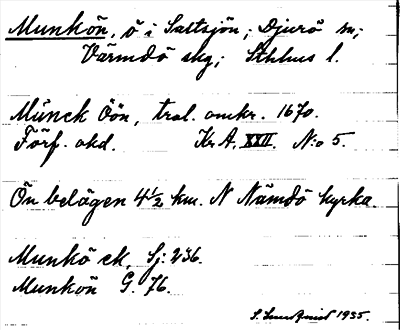 Munkön, ö i Saltsjön; Djurö sn;
Värmdö skg; Sthlms l.
Münck Öön, trol. omkr. 1670.
Förf. okd. Kr.A. XXII. N:o 5.
Ön belägen 4½ km. N Nämdö kyrka.
Munkö ek. Sj: 236.
Munkön G. 76.
1935.